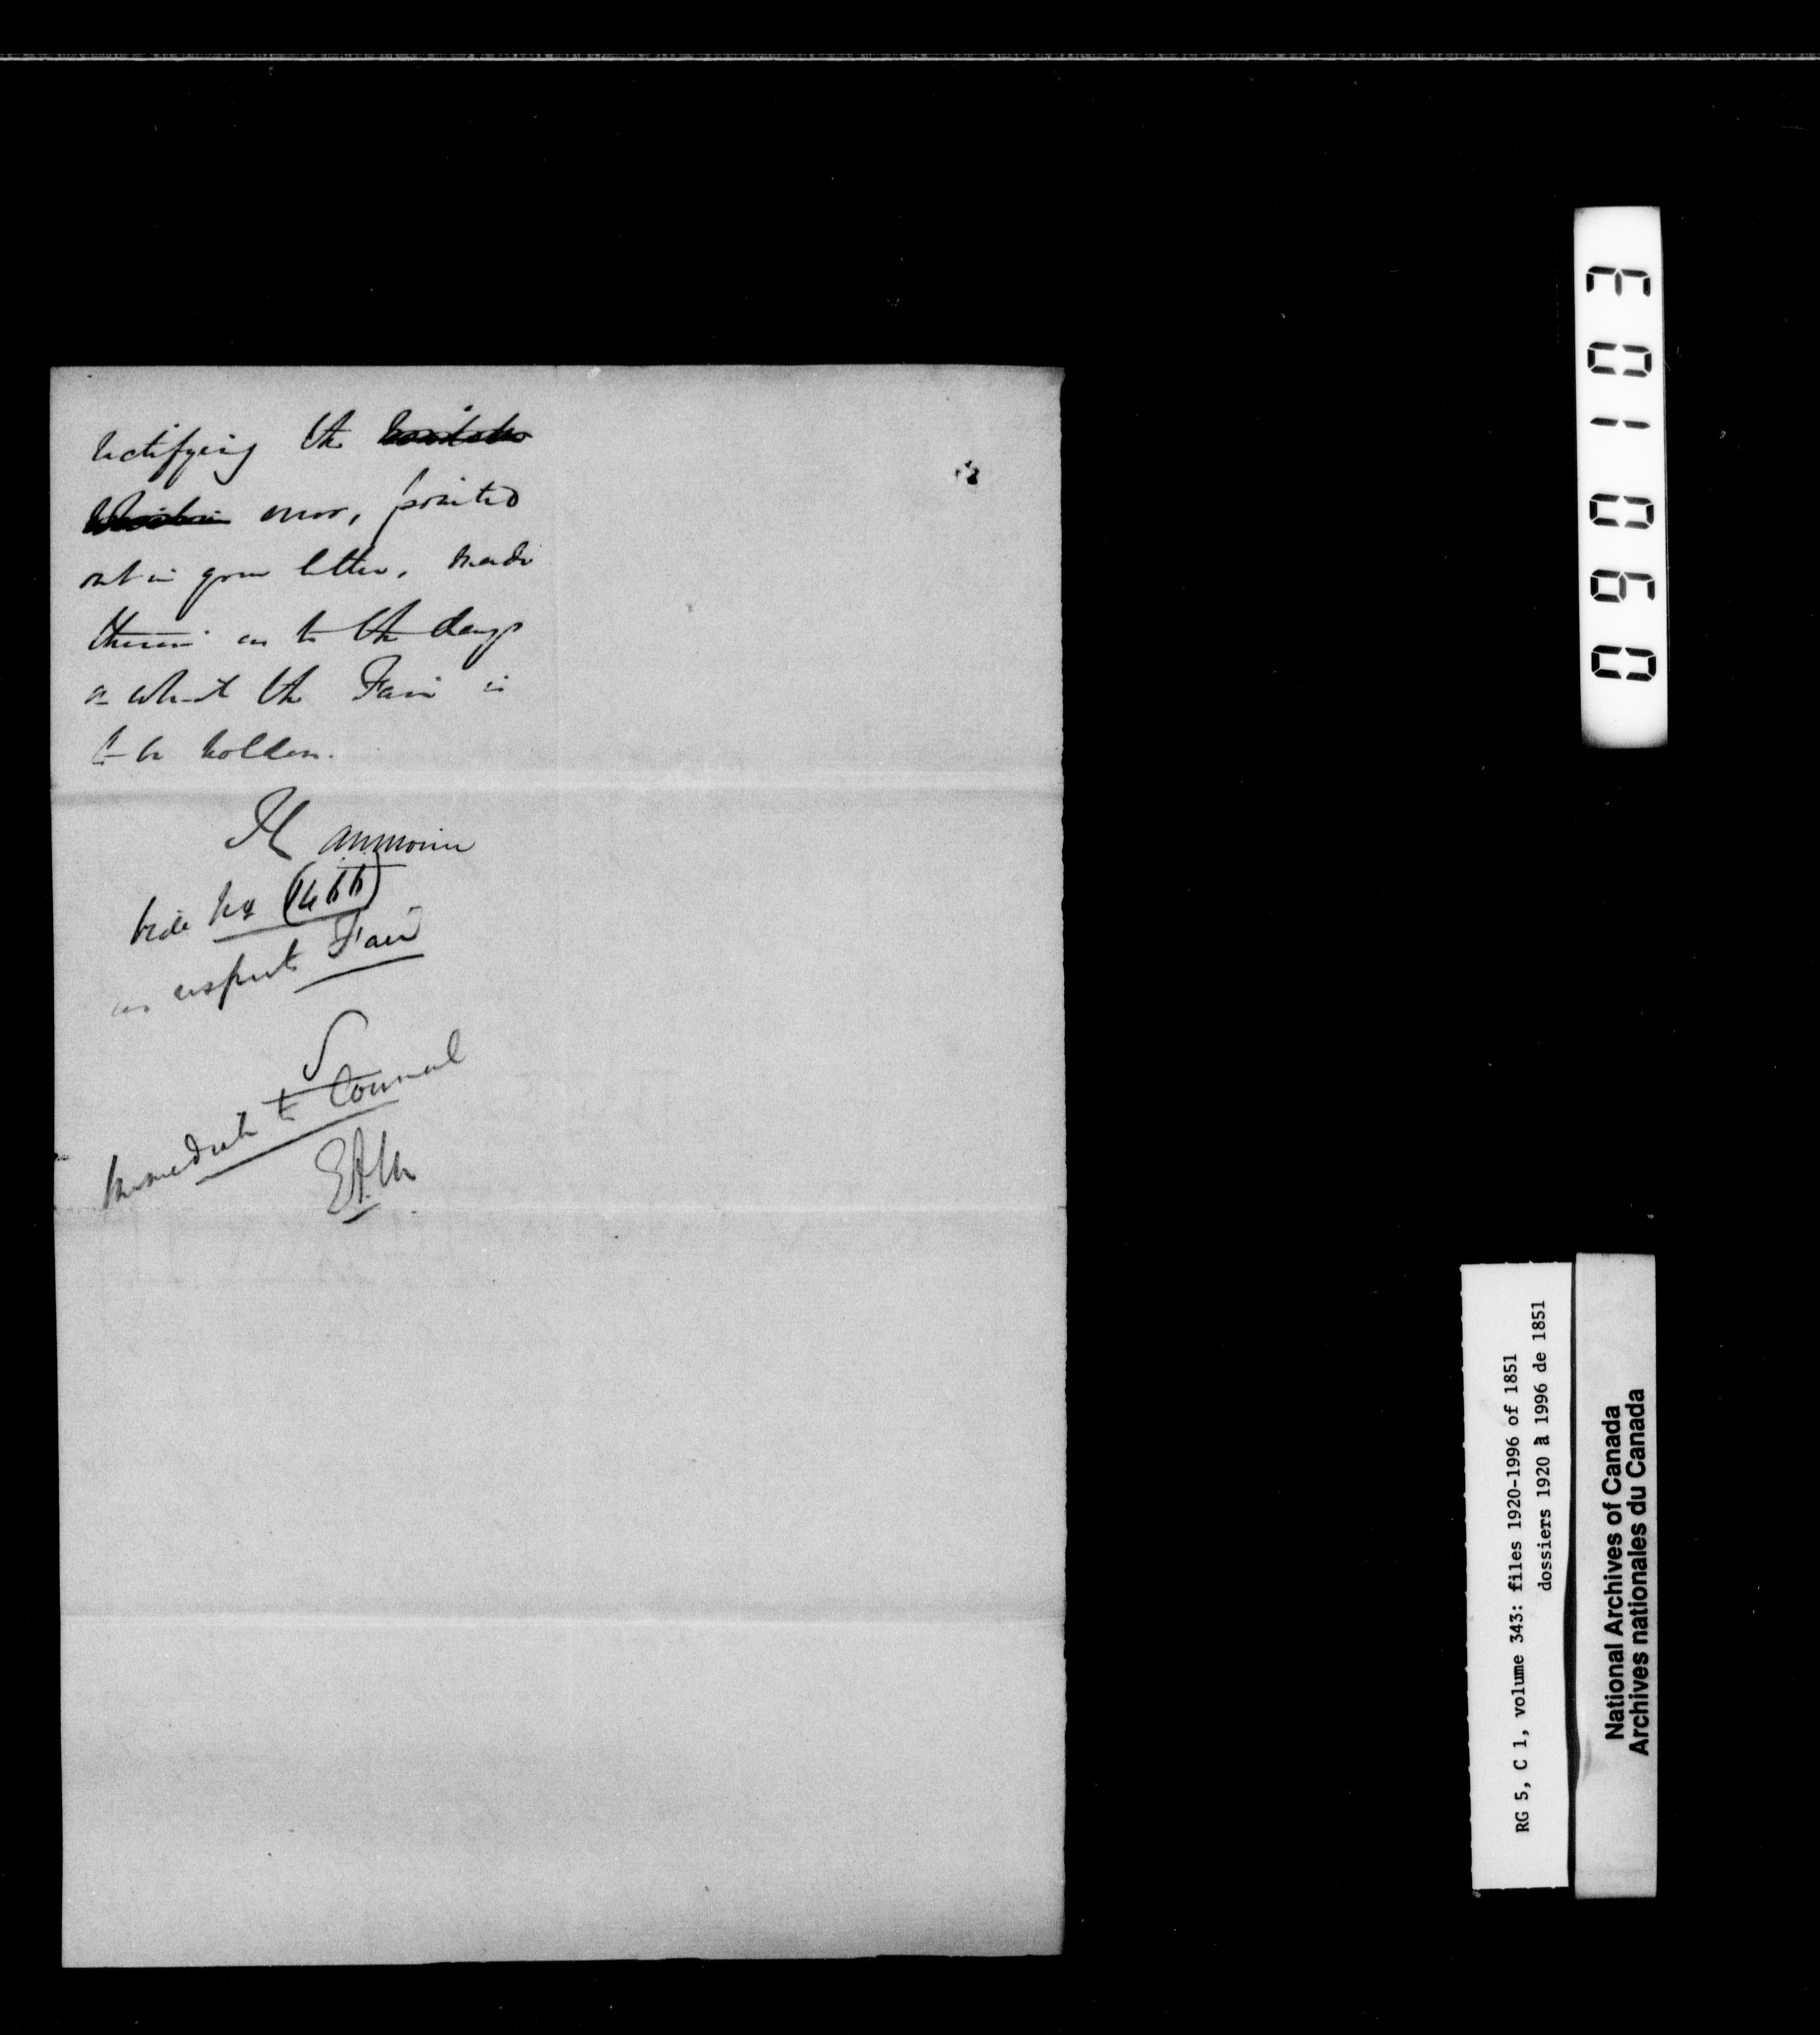 rectifying the
error, pointed
out in your letter, made
therein as to the days
on which the Fair is
to be holden.
as respects Fair
Immediate to Council
EAM
060103
RG 5, C 1, volume 343: files 1920-1996 of 1851
dossiers 1920 à 1996 de 1851
National Archives of Canada
Archives nationales du Canada